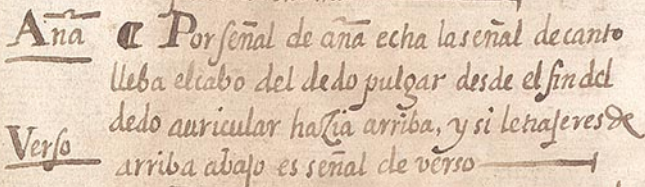 Aña ¶ Por señal de aña echa la señal de canto
lleba el cabo del dedo pulgar desde el fin del
dedo auricular hazia arriba, y si le traseres de
Verso
arriba abajo es señal de verso